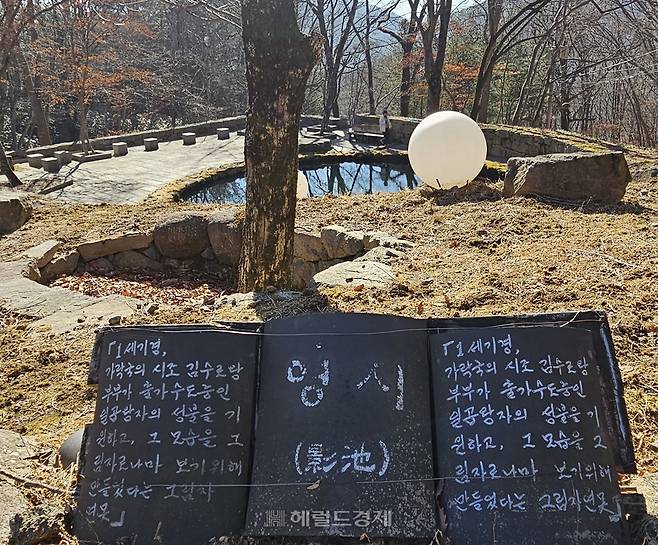 「1세기경,
가락국의 시조 김수로왕
부부가 출가수도승인
일곱왕자의 성불을 기
원하고, 그 모습을 그
림자로나마 보기위해
만들었다는 그림자
연못」
영지
(影池)
「1세기경,
가락국의 시조 김수로왕
부부가 출가수도승인
일곱왕자의 성불을 기
원하고, 그 모습을 그
림자로나마 보기위해
만들었다는 그림자연못」
헤럴드경제